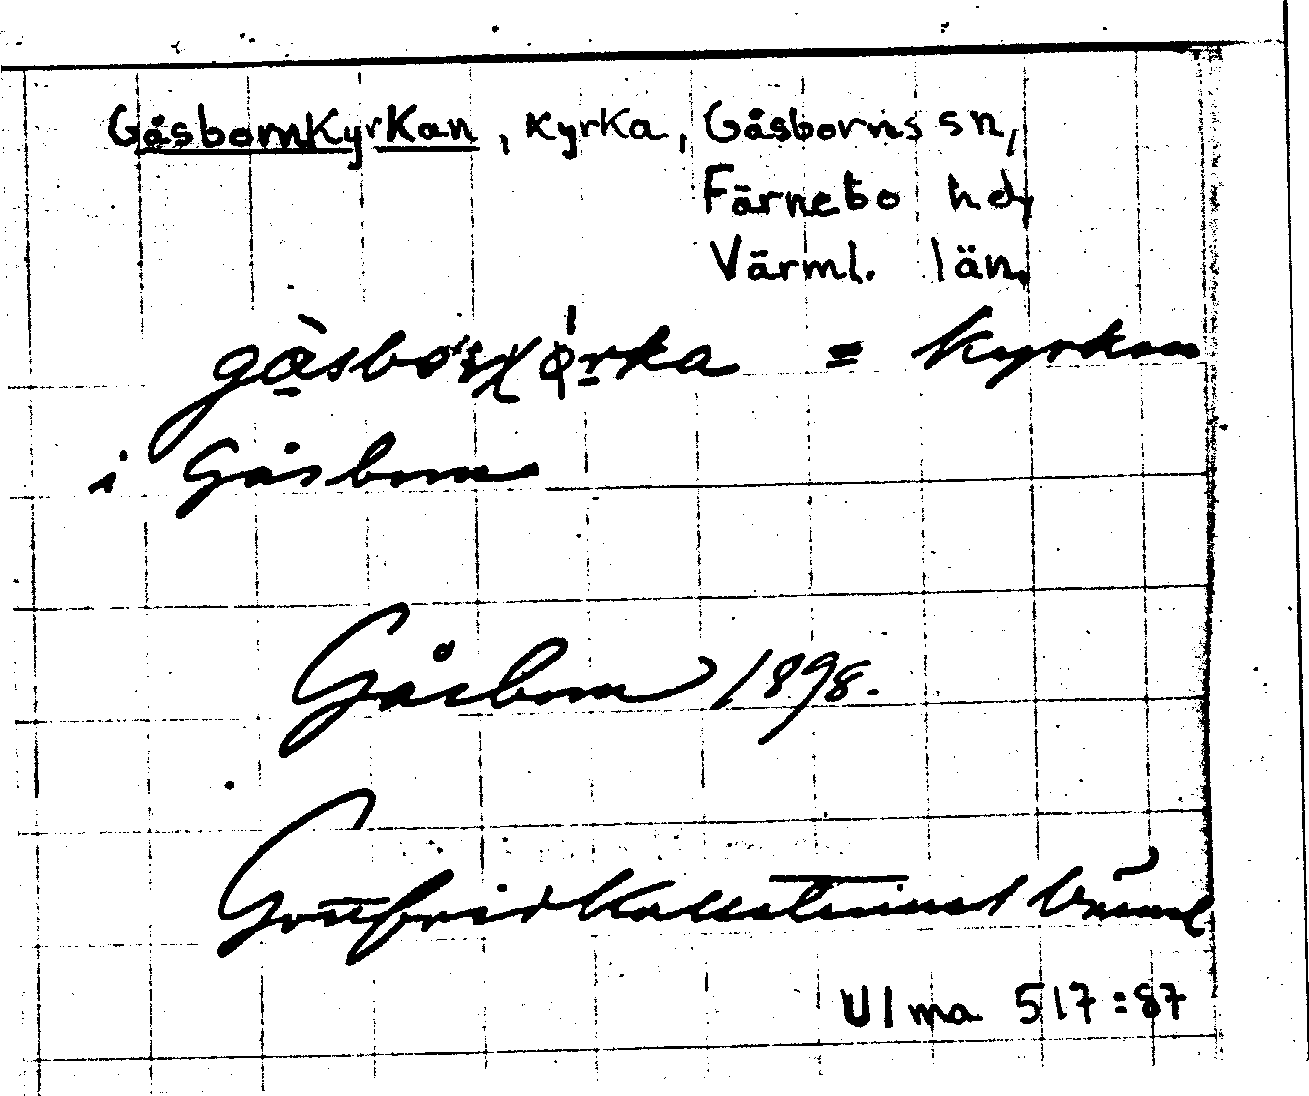 Gåsbornkyrkan, kyrka, Gåsborns sn,
Färnebo hd,
Värml. län.
= kyrkan
i Gåsborn
Gåsborn 1898.
Gottfrid Kallstenius Värml
Ulma 517:87